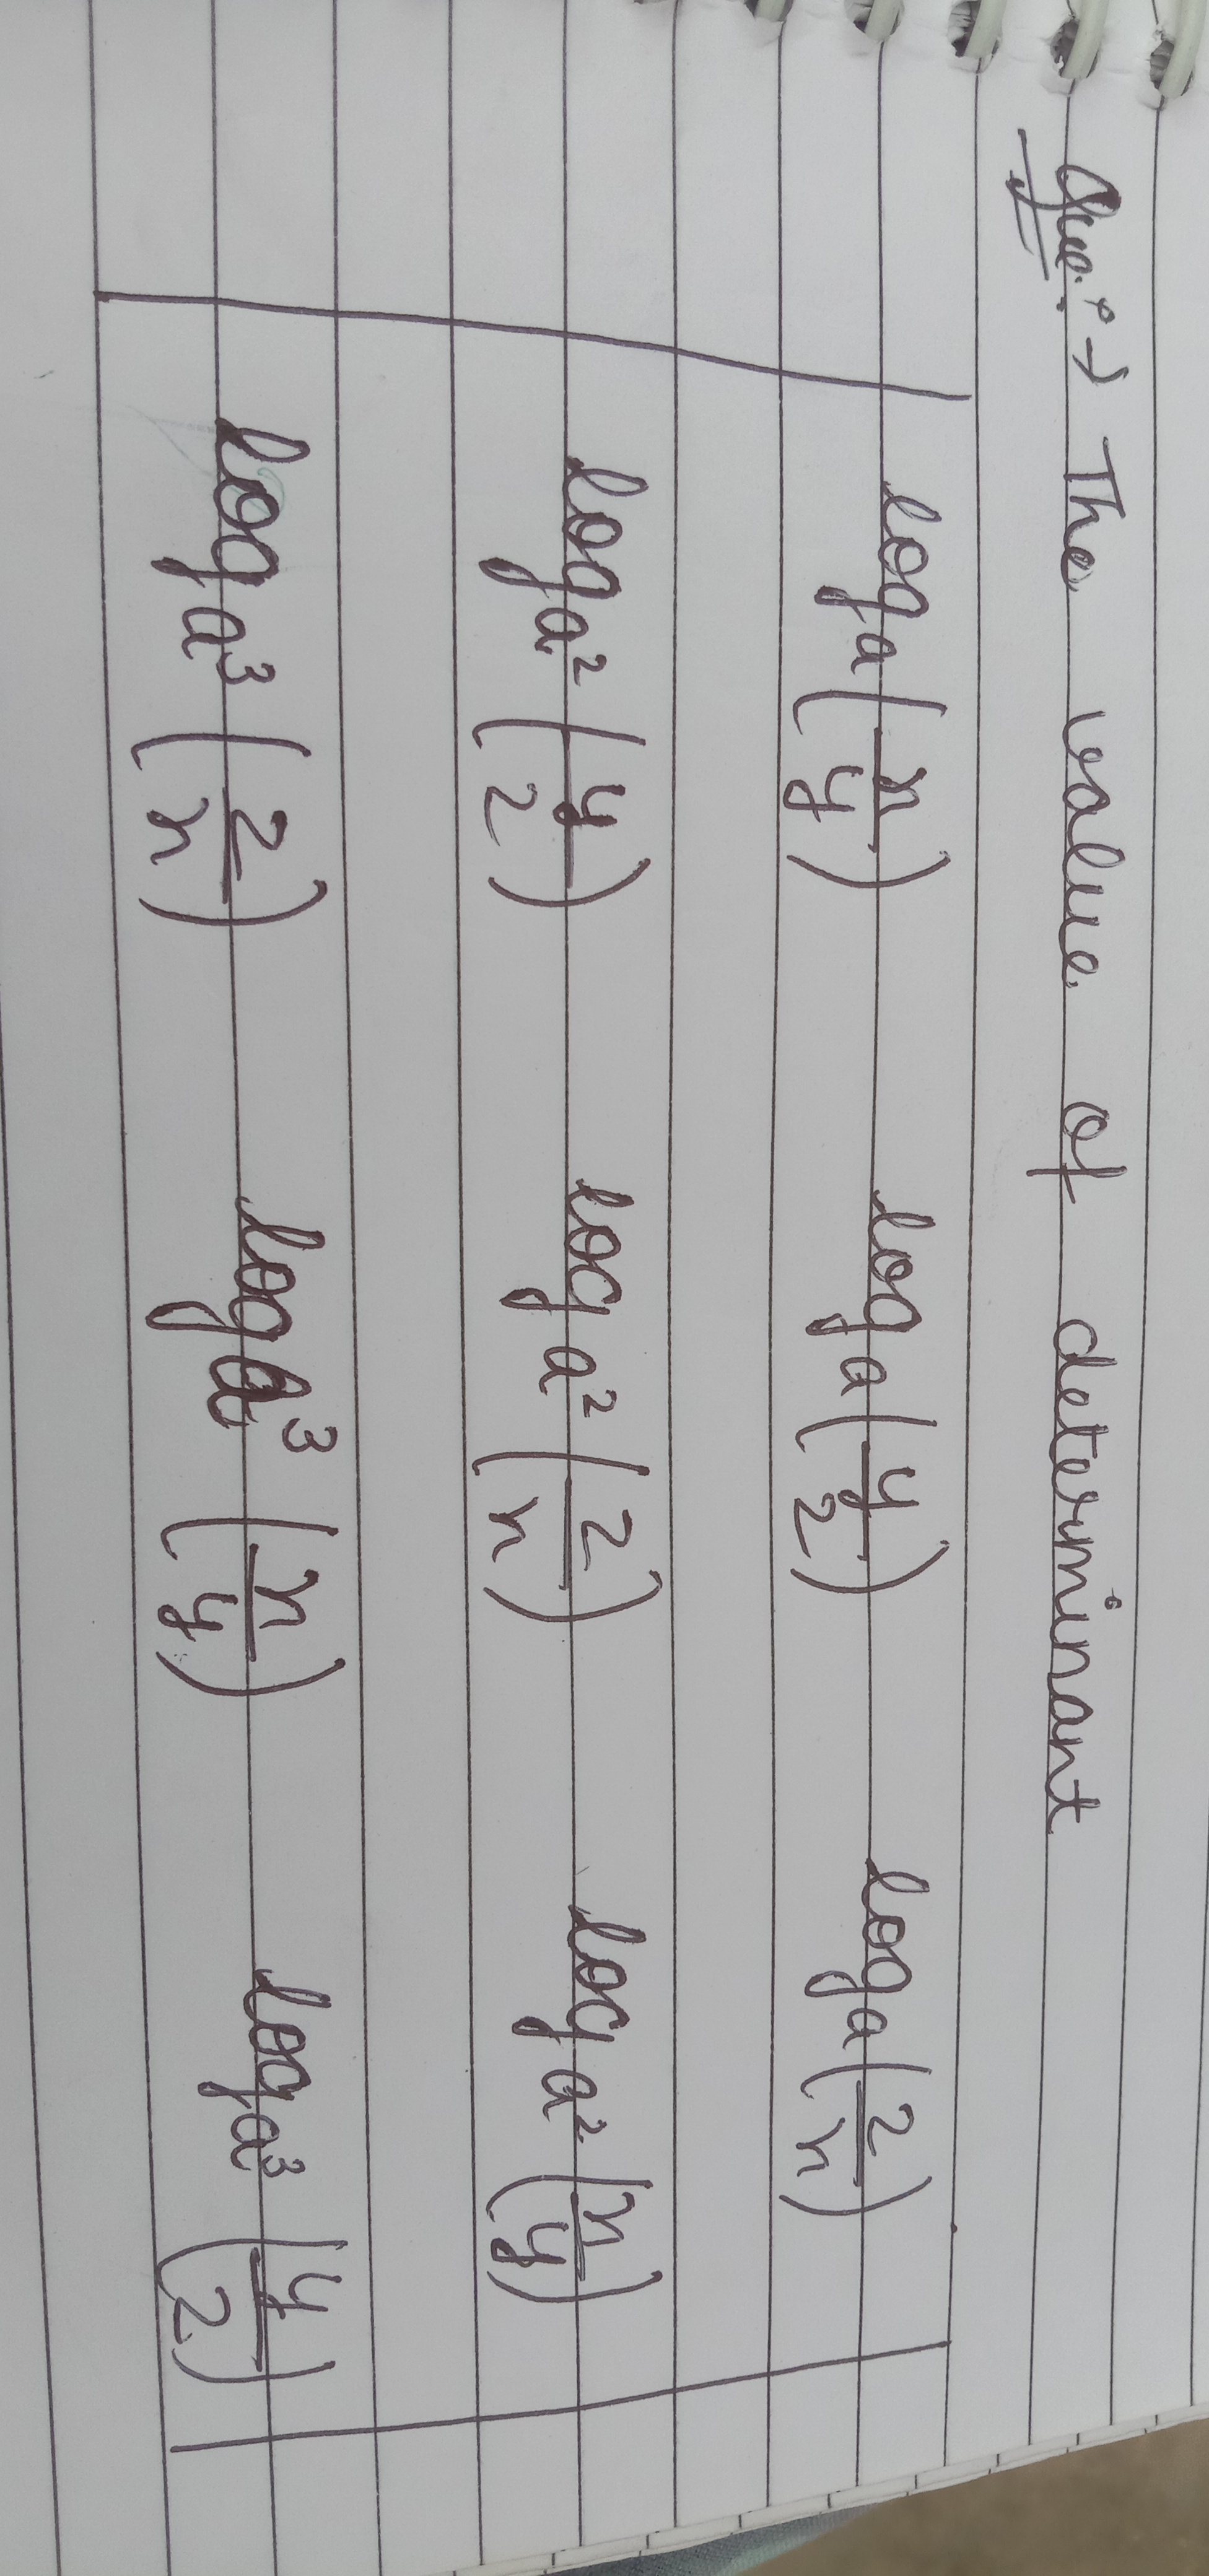 Que:→ The value of determinant
| log a (x/y) log a (y/z) log a (z/x) |
| log a² (y/z) log a² (z/x) log a² (x/y) |
| log a³ (z/x) log a³ (x/y) log a³ (y/z) |